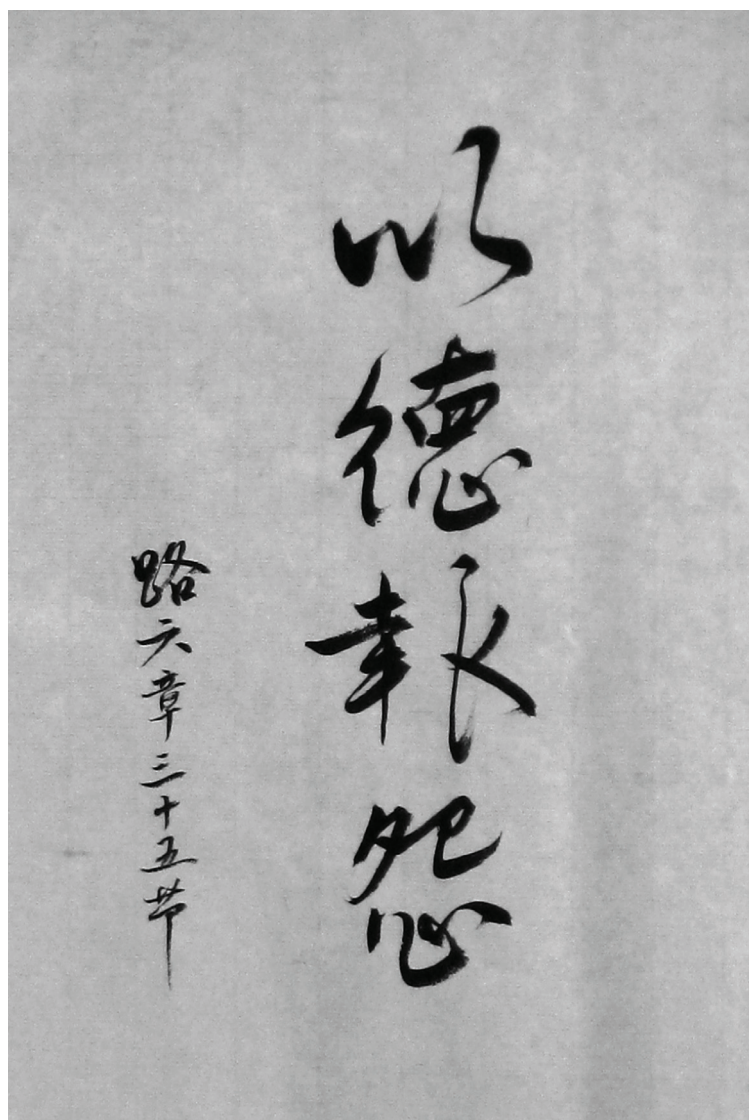 以德報怨
路六章三十五节